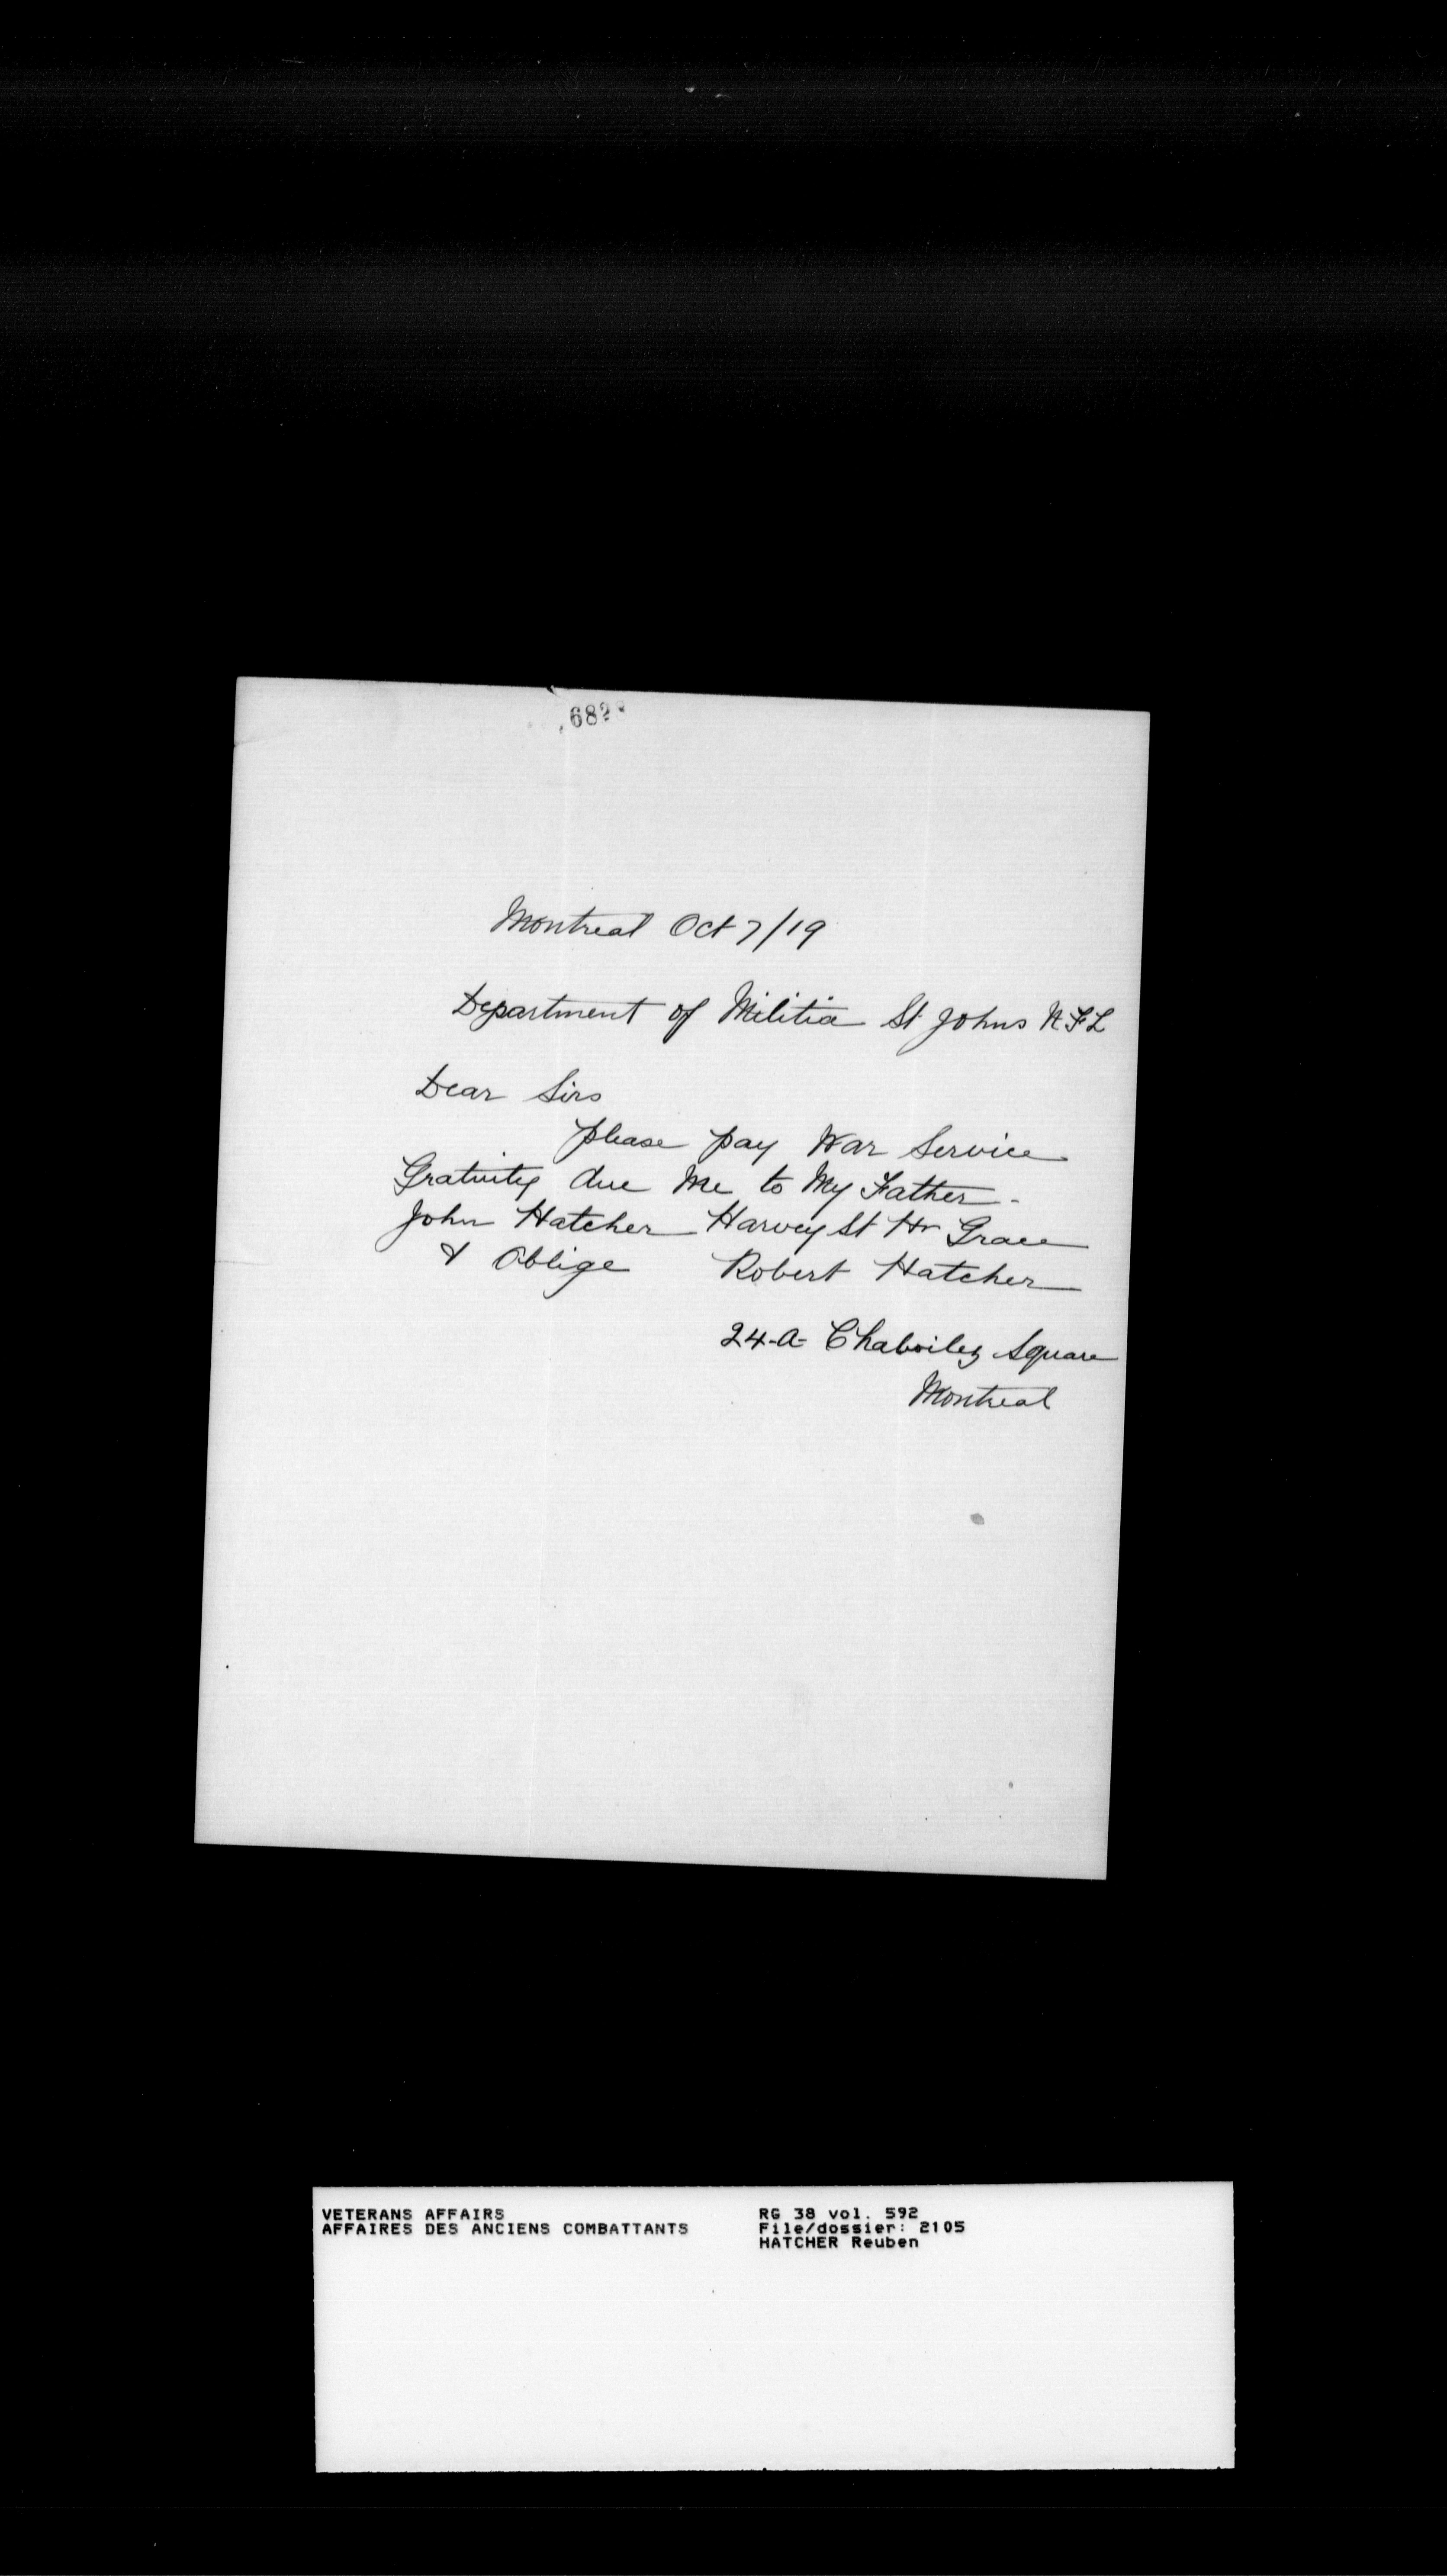 Montreal Oct 7/19
Department of Militia St Johns N.F.L
Dear Sirs
please pay War Service
Gratuity due Me to My Father -
John Hatcher Harvey St Hr Grace
& Oblige Robert Hatcher
24-A- Chaboilez Square
Montreal
VETERANS AFFAIRS
AFFAIRES DES ANCIENS COMBATTANTS
RG 38 vol. 592
File/dossier: 2105
HATCHER Reuben